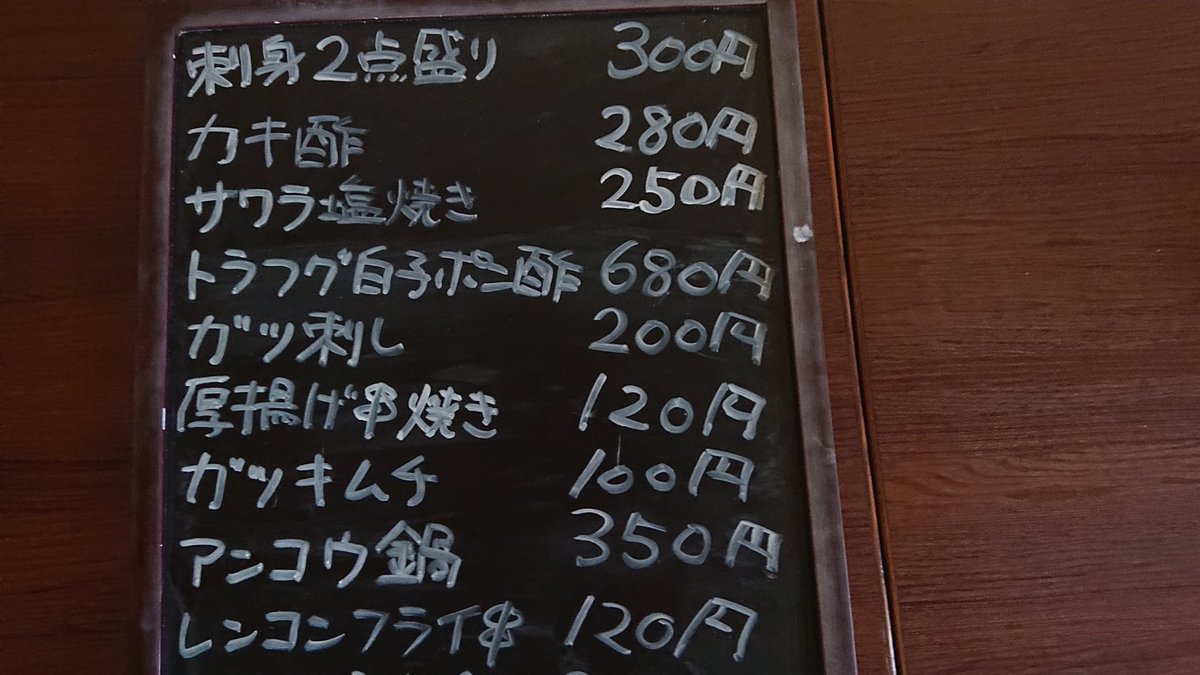 刺身2点盛り 300円
カキ酢 280円
サワラ塩焼き 250円
トラフグ白子ポン酢 680円
ガツ刺し 200円
厚揚げ串焼き 120円
ガツキムチ 100円
アンコウ鍋 350円
レンコンフライ串 120円